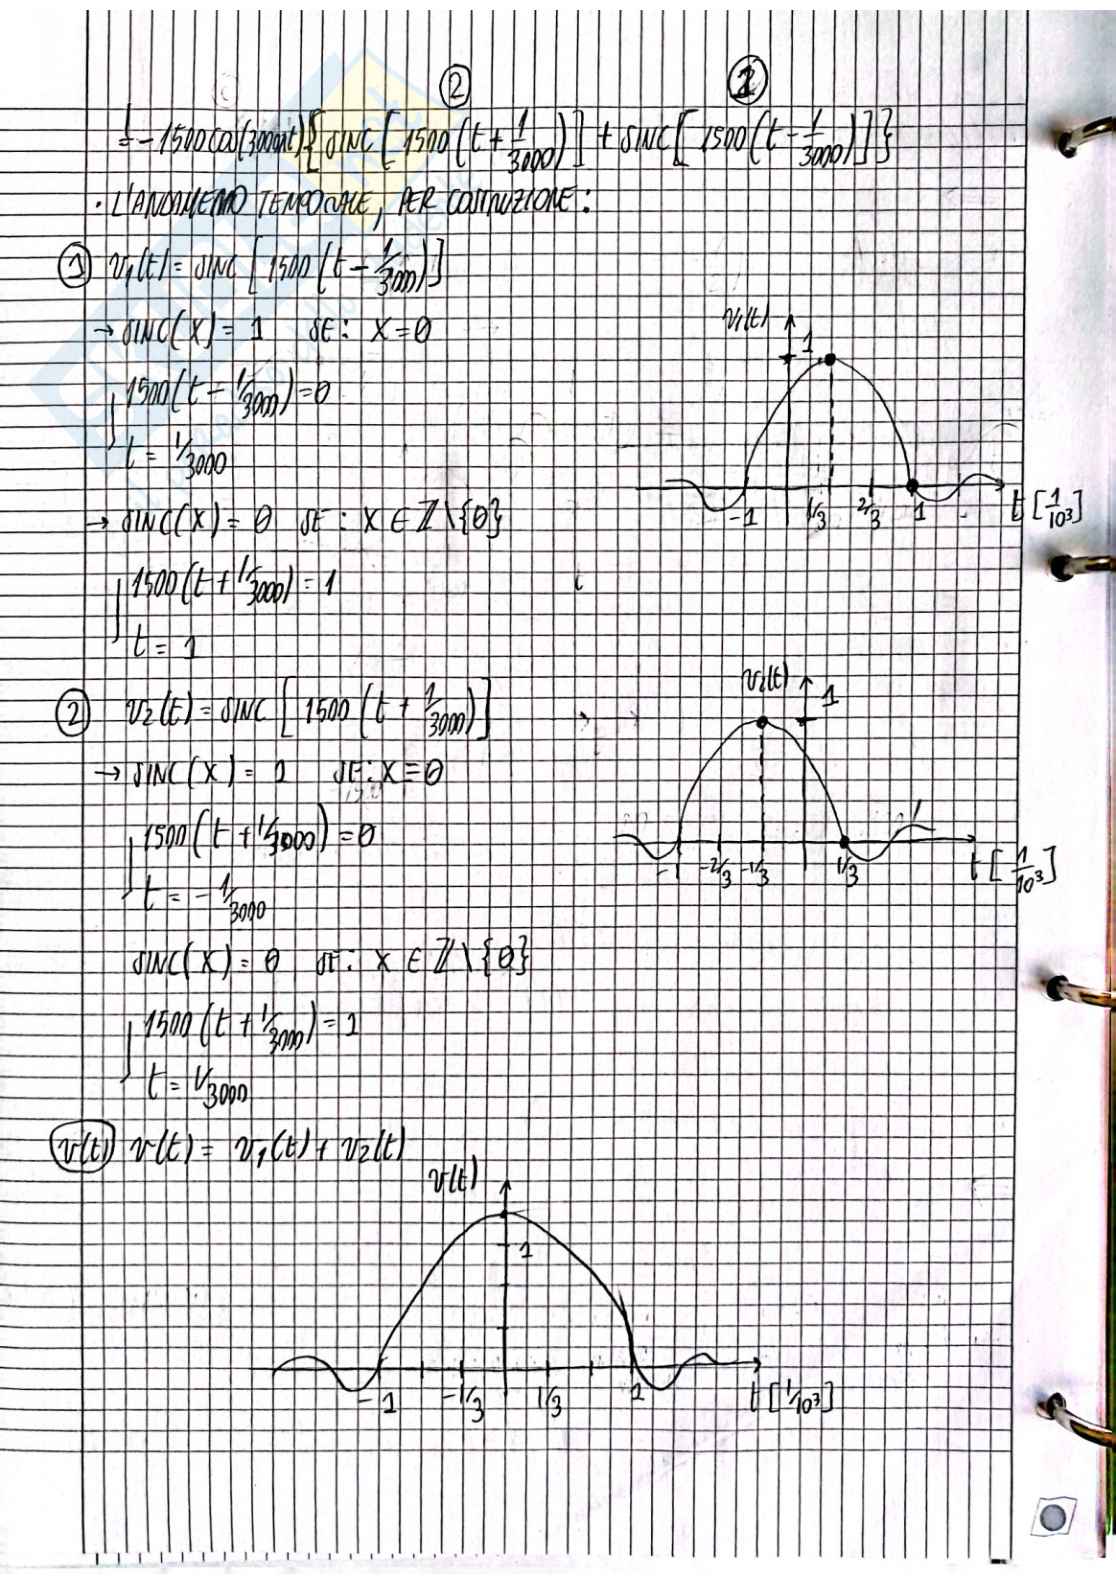 ② ①
= -1500cos(3000πt){SINC[1500(t+1/3000)] + SINC[1500(t-1/3000)]}
· L'ANDAMENTO TEMPORALE, PER COSTRUZIONE:
① v₁(t) = SINC[1500(t-1/3000)]
→ SINC(X) = 1 SE: X=0
1500(t-1/3000)=0
t = 1/3000
→ SINC(X) = 0 SE: X ∈ Z\{0}
1500(t+1/3000) = 1
t = 1
v₁(t)
1
-1 1/3 2/3 1 t[1/10³]
② v₂(t) = SINC[1500(t+1/3000)]
→ SINC(X) = 1 SE: X=0
1500(t+1/3000)=0
t = -1/3000
SINC(X) = 0 SE: X ∈ Z\{0}
1500(t+1/3000) = 1
t = 1/3000
v₂(t)
1
-1 -2/3 -1/3 1/3 t[1/10³]
v(t) v(t) = v₁(t) + v₂(t)
v(t)
1
-1 -1/3 1/3 1 t[1/10³]